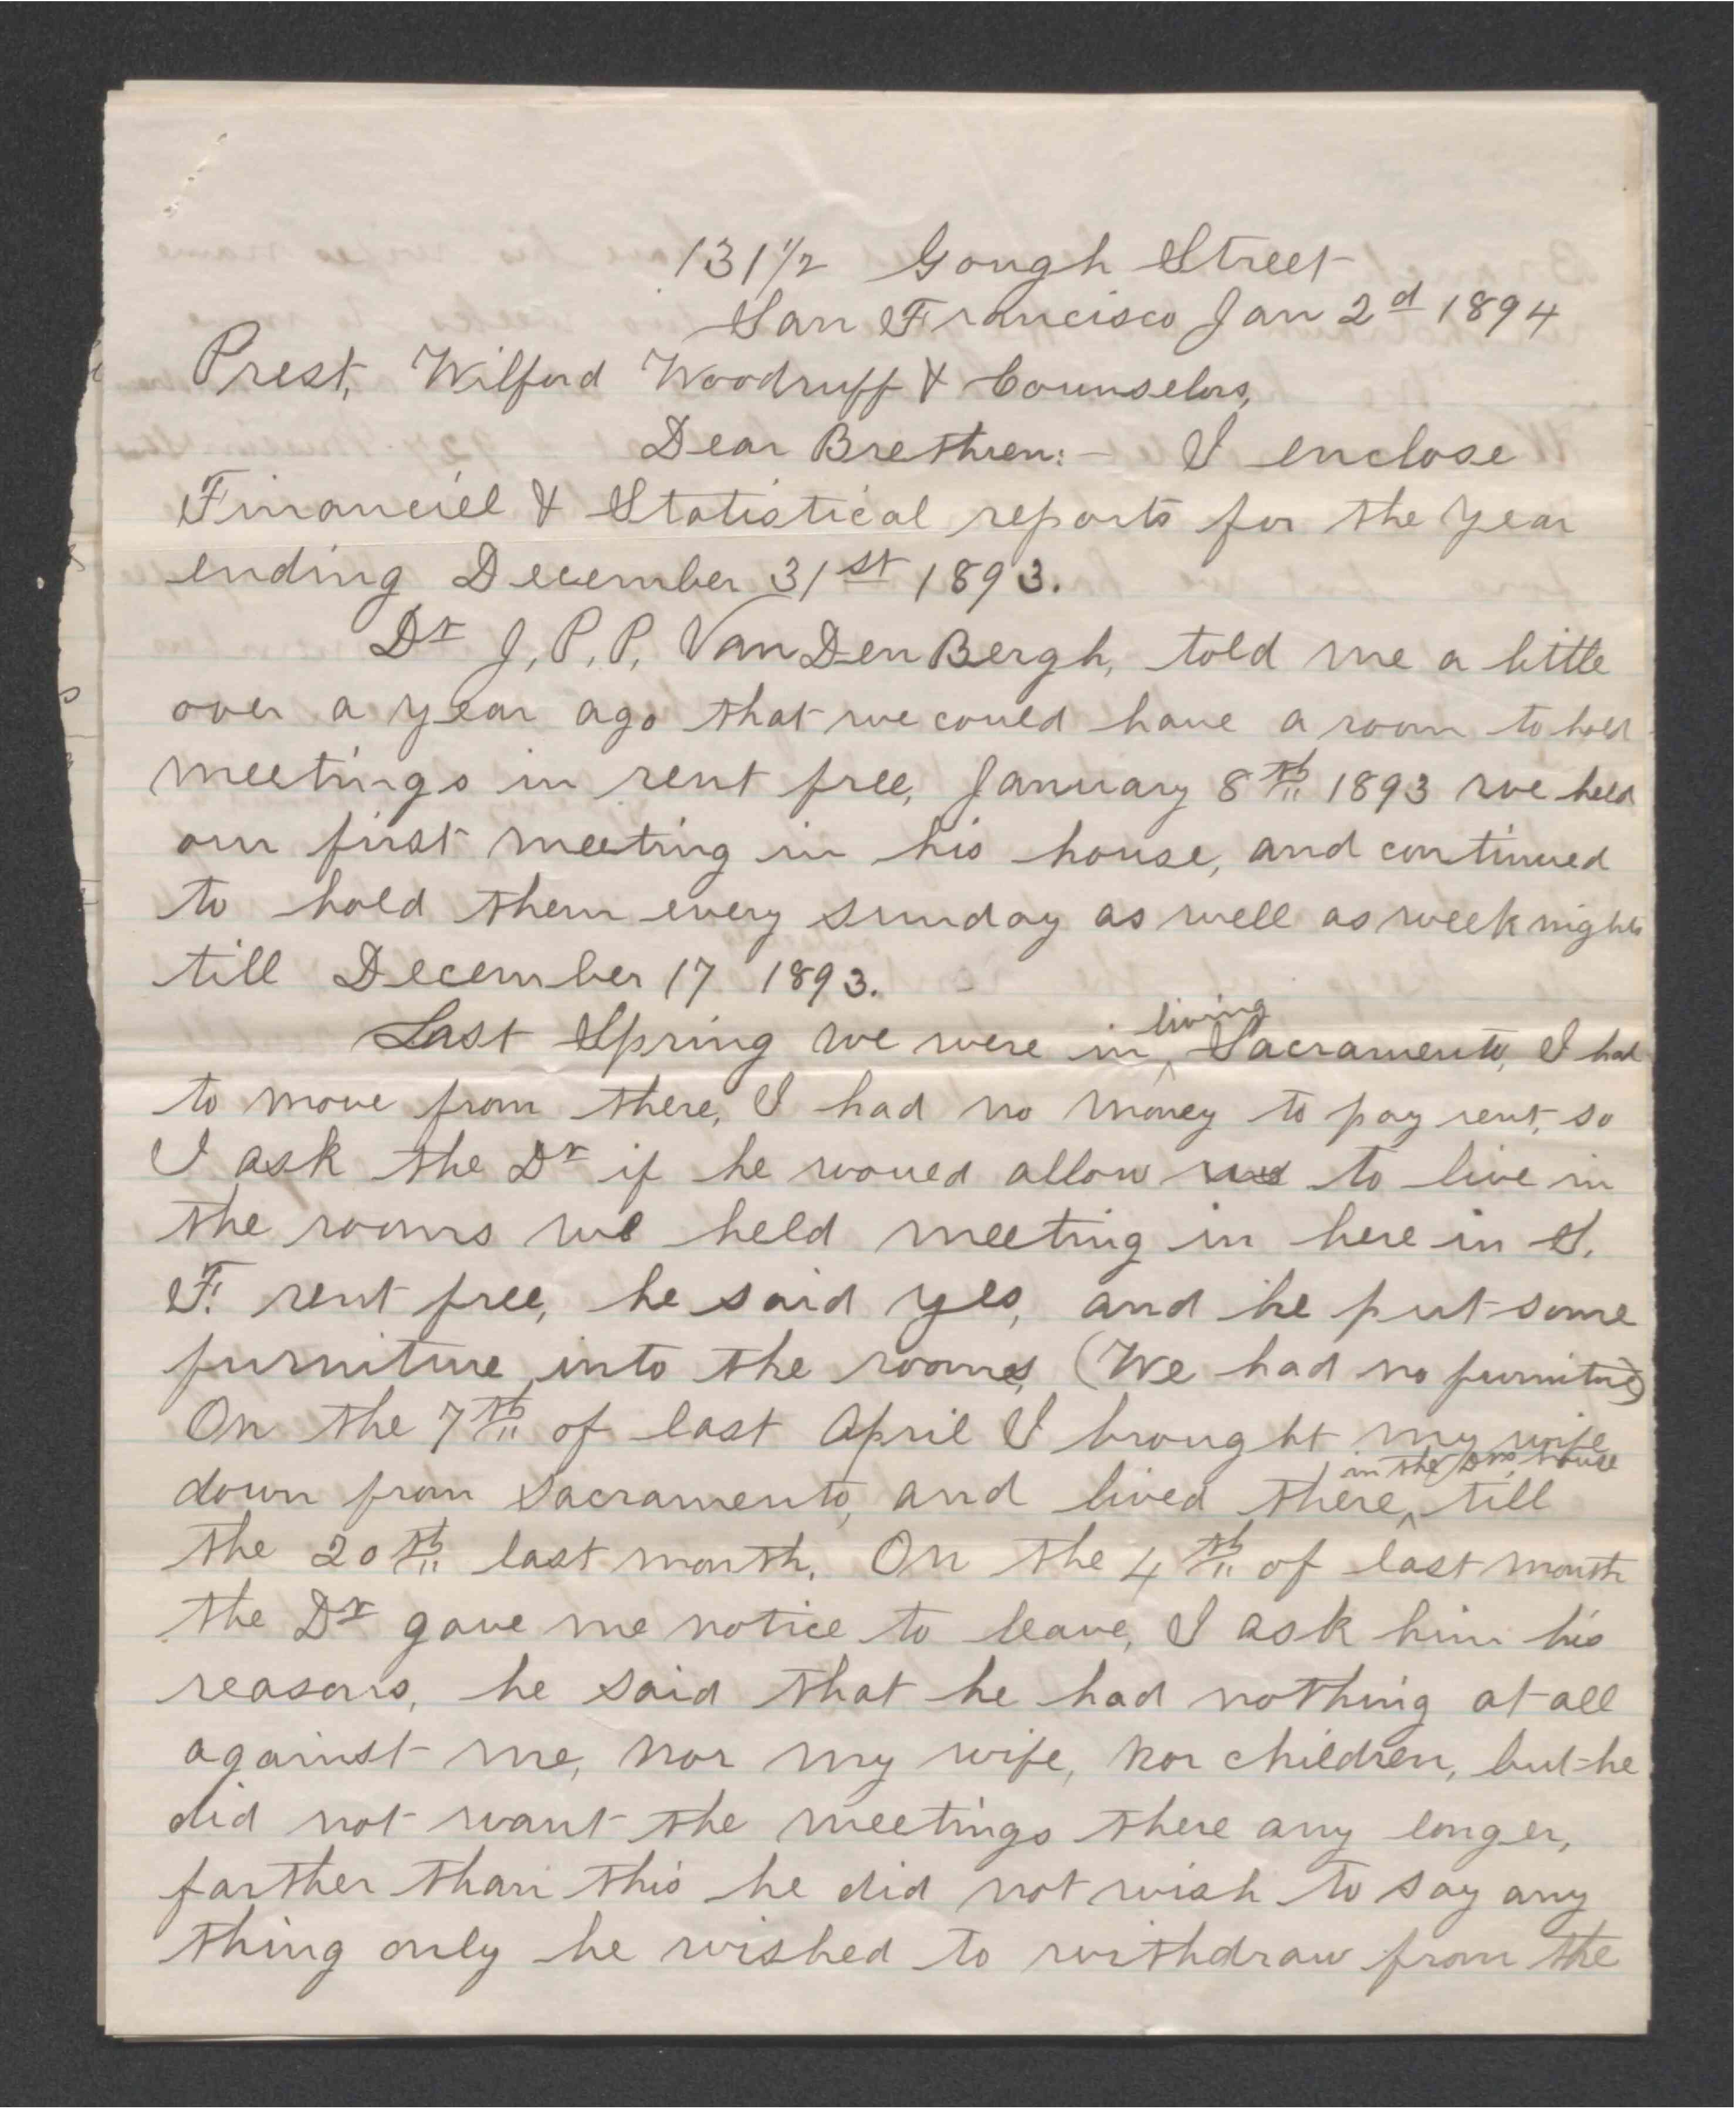 131 1/2 Gough Street
San Francisco Jan 2d 1894
Prest, Wilford Woodruff & Counselors,
Dear Brethren:- I enclose
Financiel & Statistical reports for the year
ending December 31st 1893.
Dr J, P, P, VanDenBergh, told me a little
over a year ago that we could have a room to hold
meetings in rent free, January 8th 1893 we held
our first meeting in his house, and continued
to hold them every Sunday as well as week nights
till December 17 1893.
living
Last Spring we were in ^ Sacramento, I had
to move from there, I had no money to pay rent, so
I ask the Dr if he woued allow us to live in
the rooms we held meeting in here in S.
F. rent free, he said yes, and he put some
furniture into the rooms, (We had no furniture)
On the 7th of last April I brought my wife
in the Drs, house
down from Sacramento, and lived there, ^ till
the 20th last month. On the 4th of last month
the Dr gave me notice to leave, I ask him his
reasons, he said that he had nothing at all
against me, nor my wife, nor children, but he
did not want the meetings there any longer,
farther than this he did not wish to say any
thing only he wished to withdraw from the